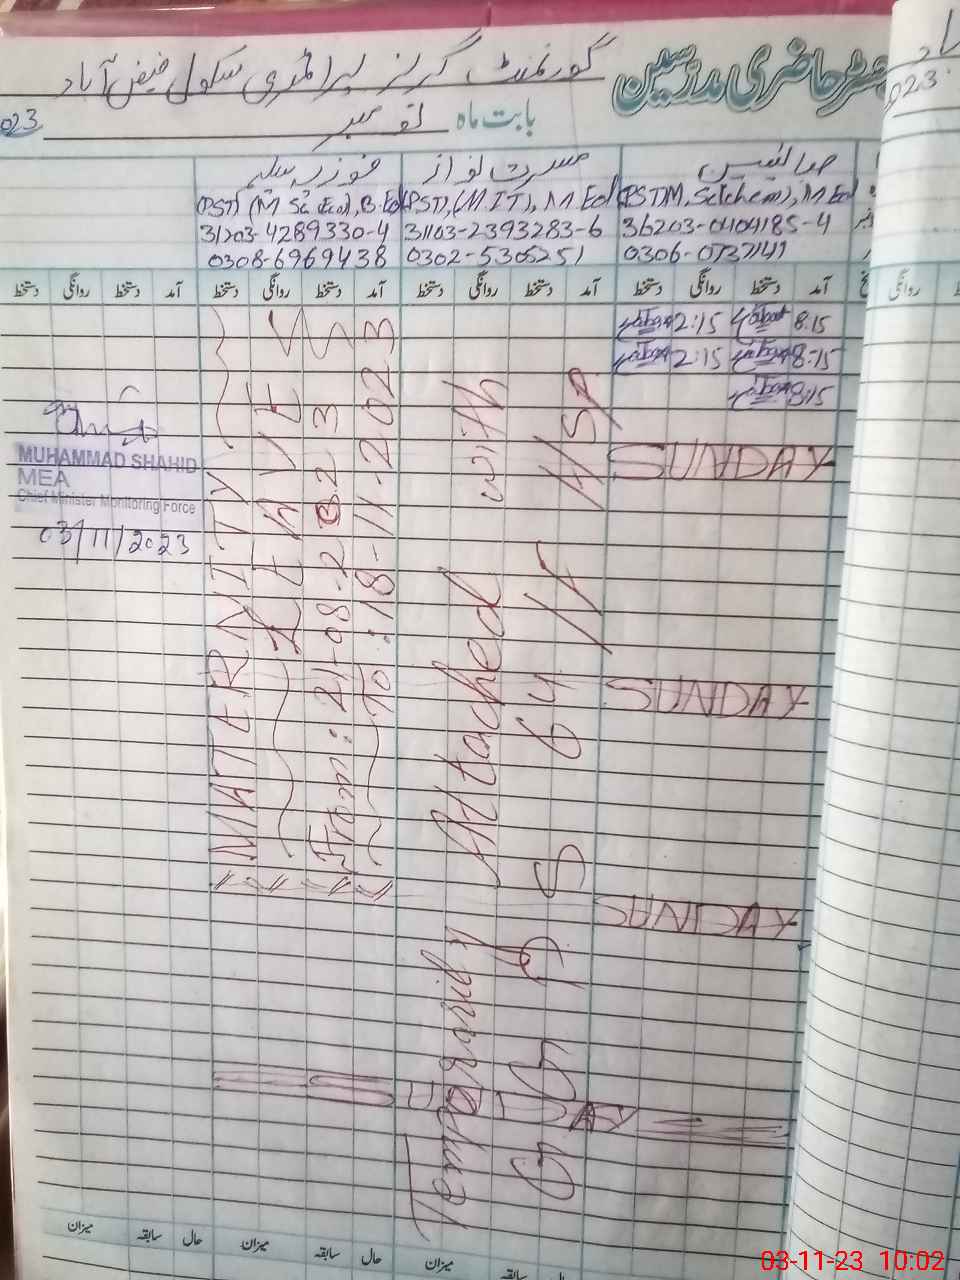 رجسٹر حاضری مدرسین
گورنمنٹ گرلز پرائمری سکول فیض آباد
بابت ماہ نومبر
023
صائمہ یٰسین
(PST)(M.Sc(chem), M.Ed
36203-0404185-4
0306-0737141
مسرت نواز
(PST), (M.IT), M.Ed
31103-2393283-6
0302-5305251
فوزیہ سلیم
(PST) (M Sc Eco), B.Ed
31203-4289330-4
0308-6969438
آمد دستخط روانگی دستخط
آمد دستخط روانگی دستخط
آمد دستخط روانگی دستخط
آمد دستخط روانگی دستخط
روانگی
8:15 2:15
8:15 2:15
8:15
SUNDAY
SUNDAY
SUNDAY
Temporarily Attached with
64 4/5P
MATERNITY
LEAVE
From: 21-08-2023
To: 18-11-2023
MUHAMMAD SHAHID
MEA
Chief Minister Monitoring Force
03/11/2023
حال سابقہ میزان
حال سابقہ میزان
سابقہ میزان
03-11-23 10:02